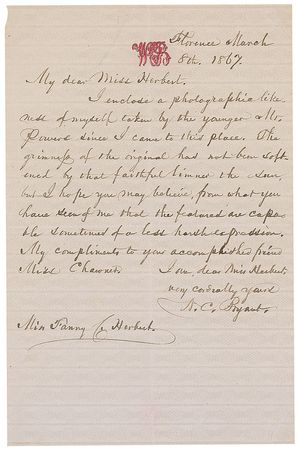 Florence March
8th. 1867.
My dear Miss Herbert.
I enclose a photographic like
ness of myself taken by the younger Mr.
Powers since I came to this place. The
grimness of the original had not been soft
ened by that faithful limner the sun,
but I hope you may believe, from what you
have seen of me that the features are capa
ble sometimes of a less harsh expression.
My compliments to your accomplished friend
Miss
I am, dear Miss Herbert
very cordially yours
W. C. Bryant.
Miss Fanny E. Herbert.